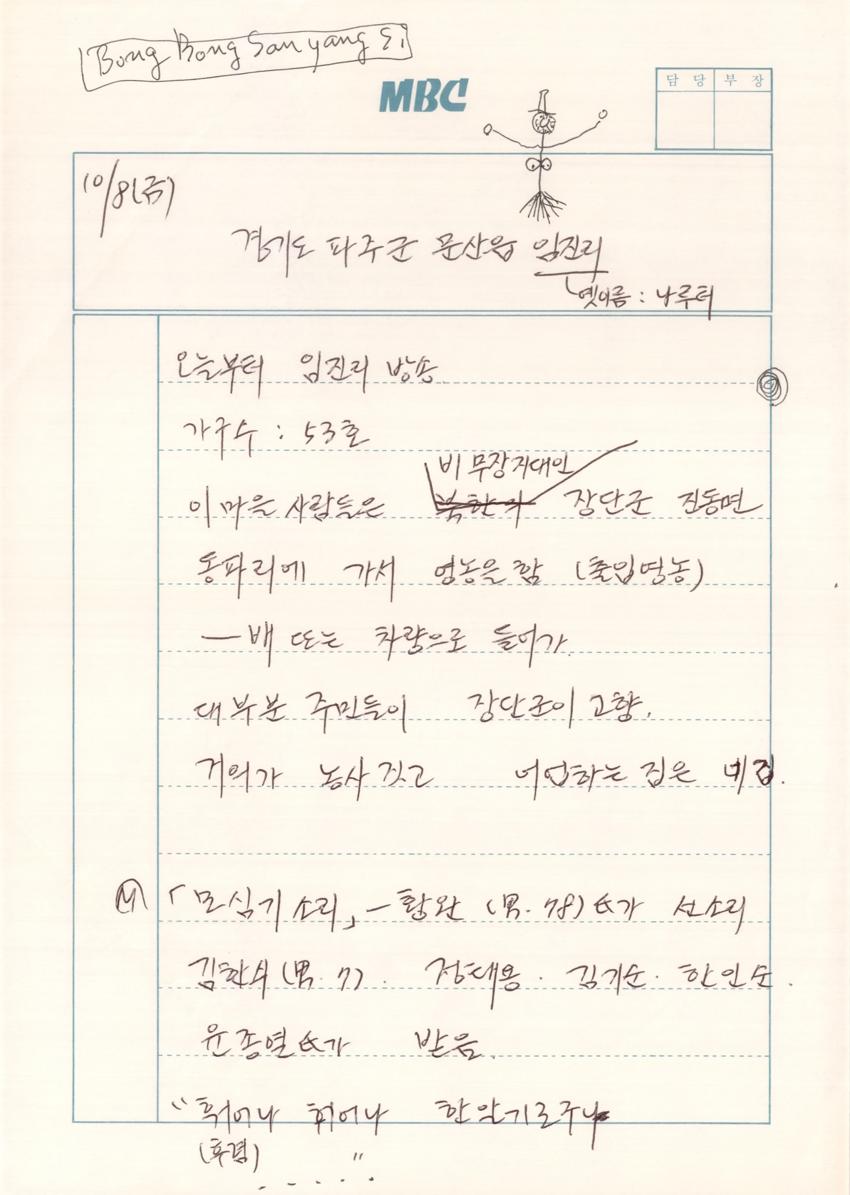 Bong Bong San yang Ei
MBC
담당 부장
10/8(금)
경기도 파주군 문산읍 임진리
옛이름 : 나루터
오늘부터 임진리 방송
가구수 : 53호
비무장지대인
이 마을 사람들은 북한의 장단군 진동면
동파리에 가서 영농을 함 (출입영농)
— 배 또는 차량으로 들어가.
대부분 주민들이 장단군이 고향.
거의가 농사 짓고 어업하는 집은 네집.
M 「모심기 소리」 — 황완 (男. 78) 氏가 선소리
김한식 (男. 71) . 정태용 . 김기순 . 한인순 .
윤종열 氏가 받음.
"훠이나 훠이나 한알기로구나
(후렴) "
. . . . .